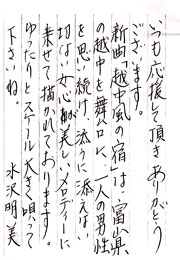 いつも応援して頂きありがとう
ございます。
新曲「越中風の宿」は、富山県
の越中を舞台に、一人の男性
を思い続け、添うに添えない
切ない女心が美しいメロディーに
乗せて描かれております。
ゆったりとスケール大きく唄って
下さいね。
水沢明美